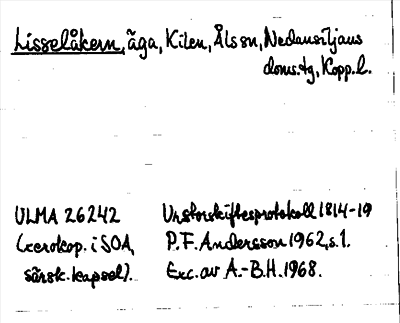 Lisselåkern, äga, Kilen, Åls sn, Nedansiljans
doms.tg, Kopp.l.
ULMA 26242
(xerokop. i SOA,
särsk. kapsel).
Urstorskiftesprotokoll 1814-19
P.F. Andersson 1962, s. 1.
Exc. av A.-B.H. 1968.